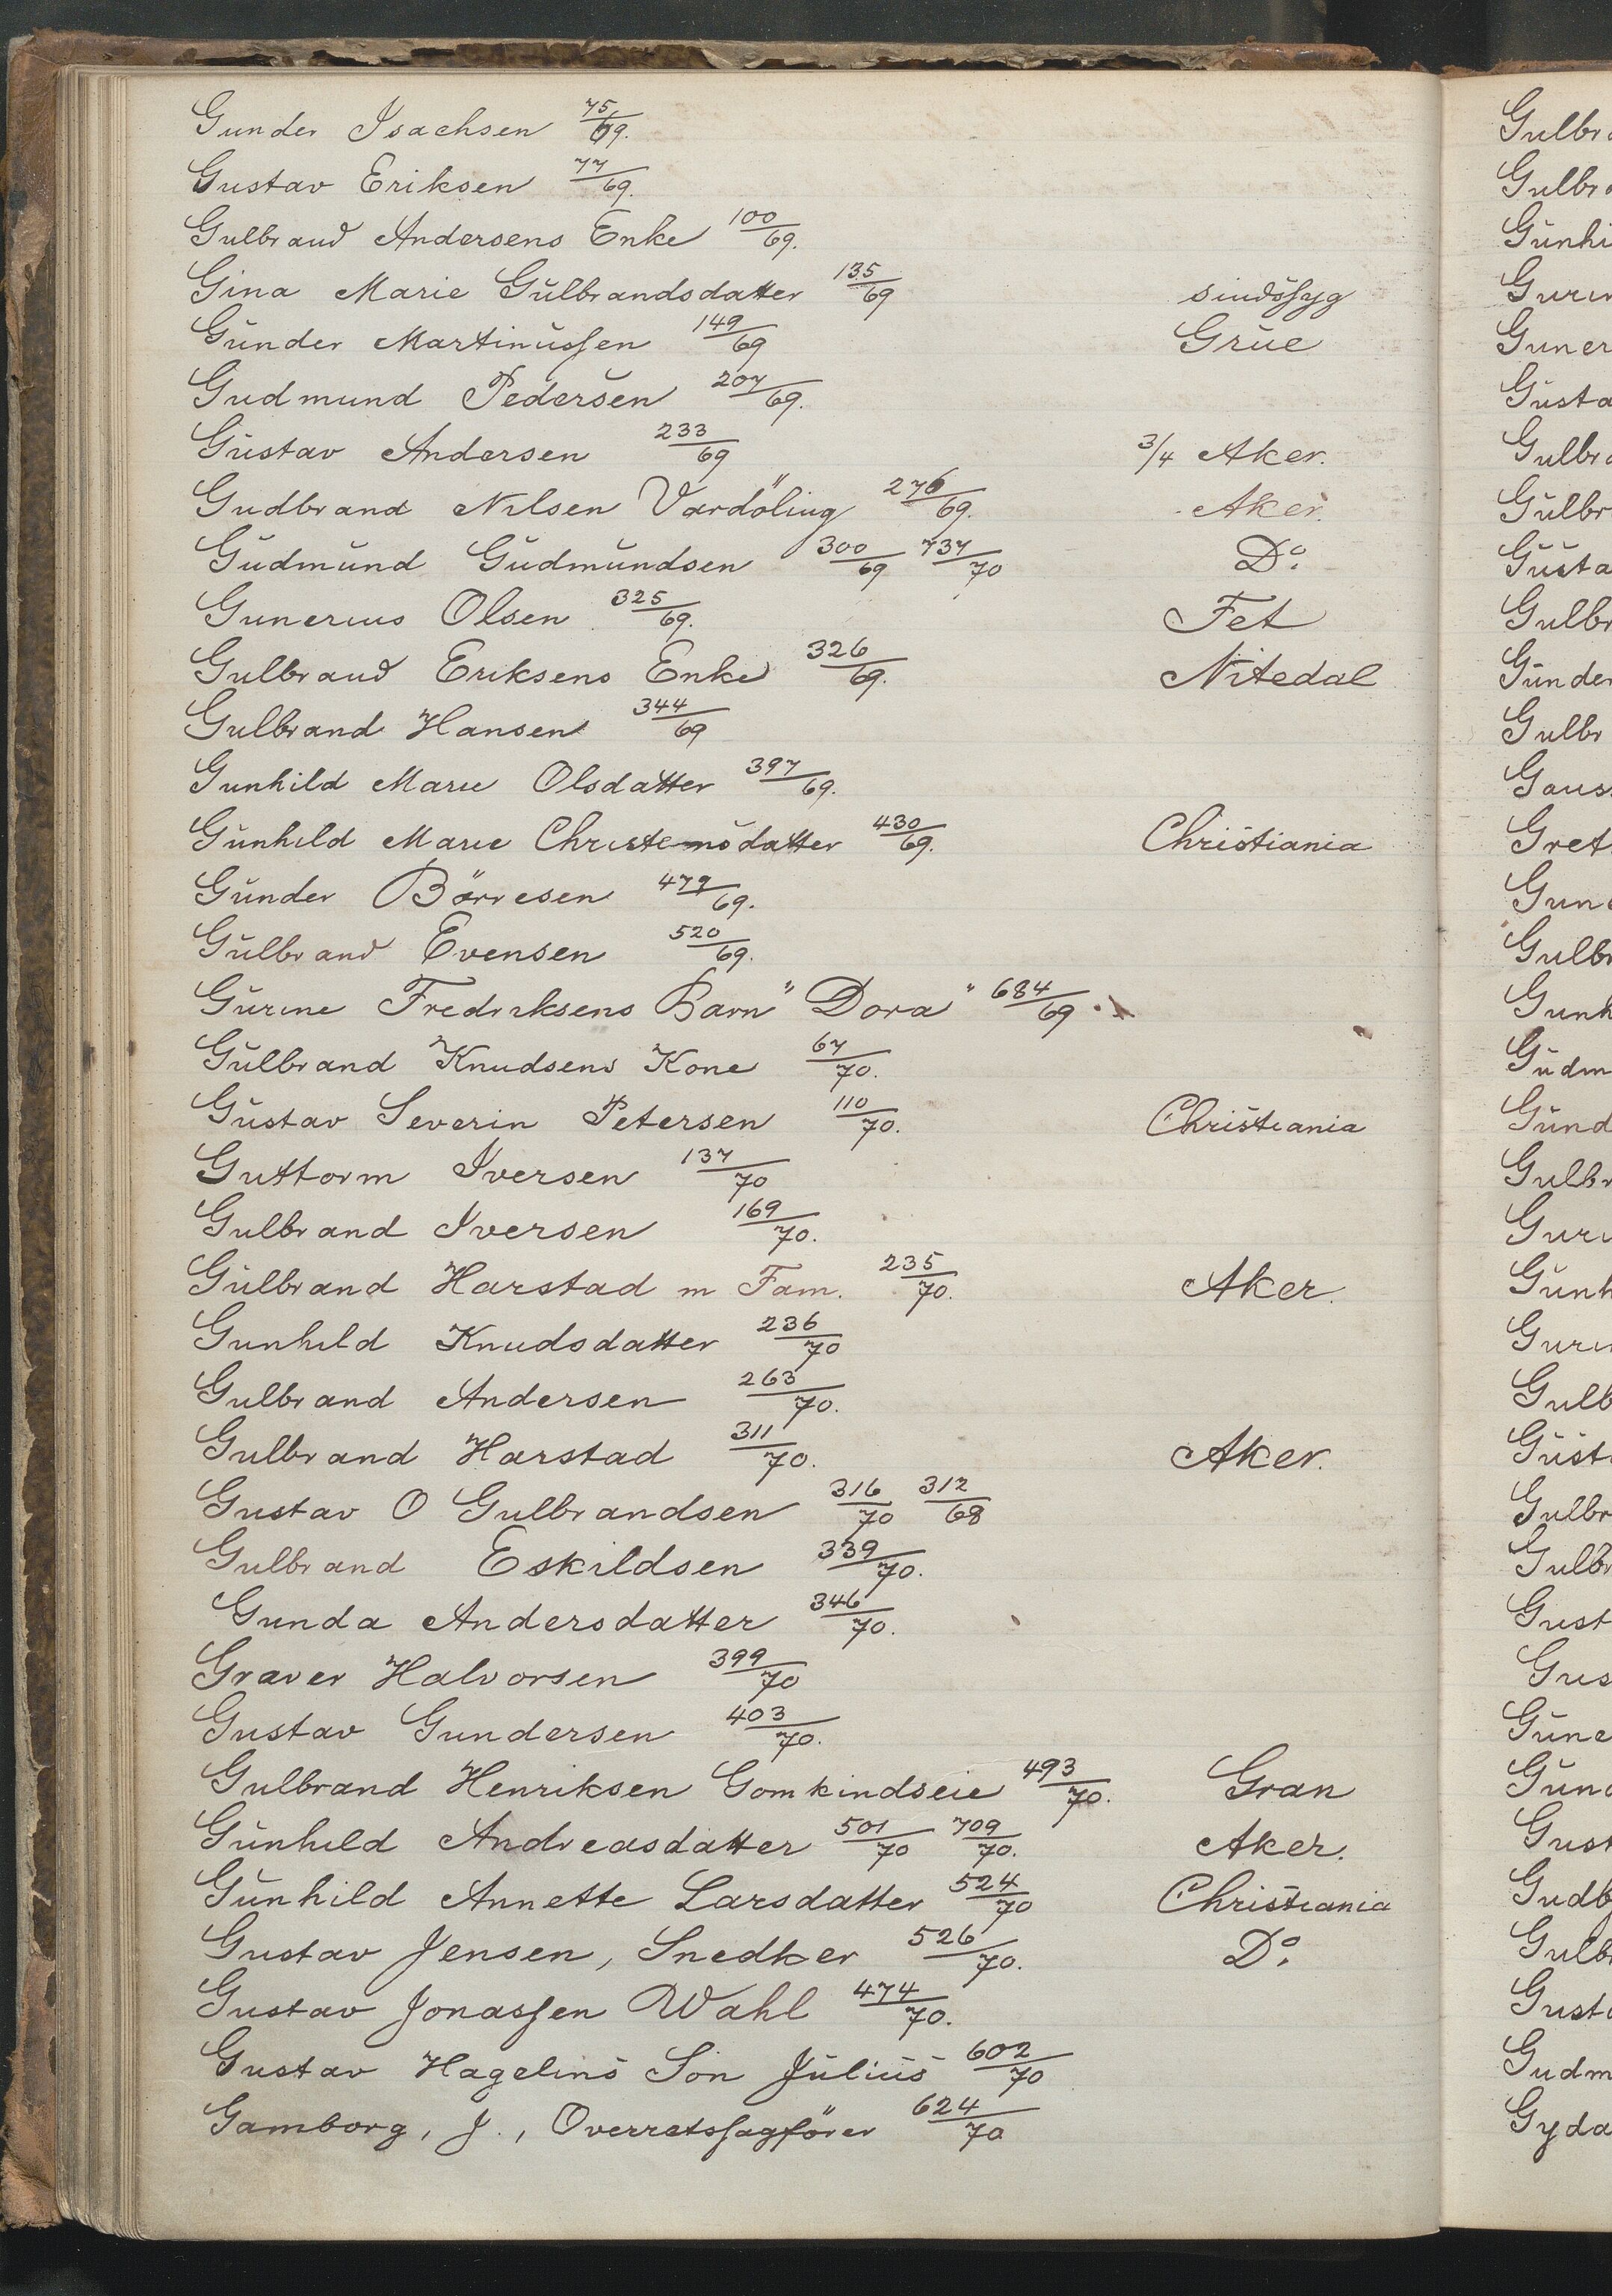 Gunder Isachsen 75/69.
Gustav Eriksen 77/69.
Gulbrand Andersens Enke 100/69.
Gina Marie Gulbrandsdatter 135/69 sindssyg
Gunder Martinussen 149/69 Grue
Gudmund Pedersen 207/69.
Gustav Andersen 233/69 3/4 Aker.
Gudbrand Nilsen Vardöling 276/69. Aker.
Gudmund Gudmundsen 300/69 737/70 Do.
Gunerius Olsen 325/69. Fet
Gulbrand Eriksens Enke 326/69. Nitedal
Gulbrand Hansen 344/69
Gunhild Marie Olsdatter 397/69.
Gunhild Marie Christensdatter 430/69. Christiania
Gunder Börresen 479/69.
Gulbrand Evensen 520/69.
Gurine Fredriksens Barn "Dora" 684/69.
Gulbrand Knudsens Kone 67/70.
Gustav Severin Petersen 110/70. Christiania
Guttorm Iversen 137/70
Gulbrand Iversen 169/70.
Gulbrand Harstad m Fam. 235/70. Aker.
Gunhild Knudsdatter 236/70
Gulbrand Andersen 263/70.
Gulbrand Harstad 311/70. Aker.
Gustav O Gulbrandsen 316/70 312/68
Gulbrand Eskildsen 339/70.
Gunda Andersdatter 346/70.
Graver Halvorsen 399/70
Gustav Gundersen 403/70.
Gulbrand Henriksen Gomkindseie 493/70. Gran
Gunhild Andreasdatter 501/70 709/70. Aker.
Gunhild Annette Larsdatter 524/70 Christiania
Gustav Jensen, Snedker 526/70. Do.
Gustav Jonassen Wahl 474/70.
Gustav Hagelins Sön Julius 602/70
Gamborg, J., Overretssagförer 624/70